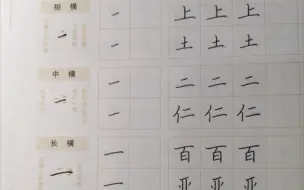 短横
一 上上上
一 土土土
中横
一 二二二
一 仁仁仁
长横
一 百百百
亚亚亚